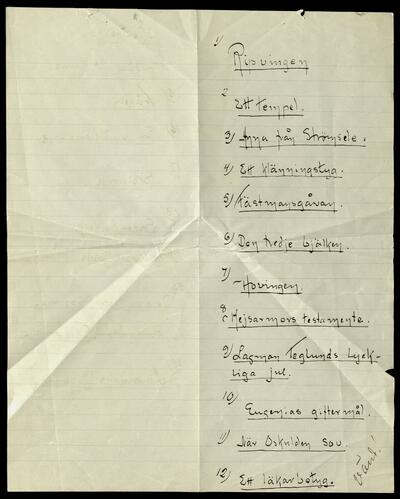 1)
Ripvingen
2
Ett tempel.
3) Anna från Strömsele.
4) Ett klänningstyg.
5) Fästmansgåvan.
6) Den tredje bjälken.
7) Hovingen.
8) Kejsarmors testamente.
9) Lagman Teglunds lyck-
liga jul.
10)
Eugenias giftermål.
11) När Oskulden sov.
12) Ett läkarbetyg.